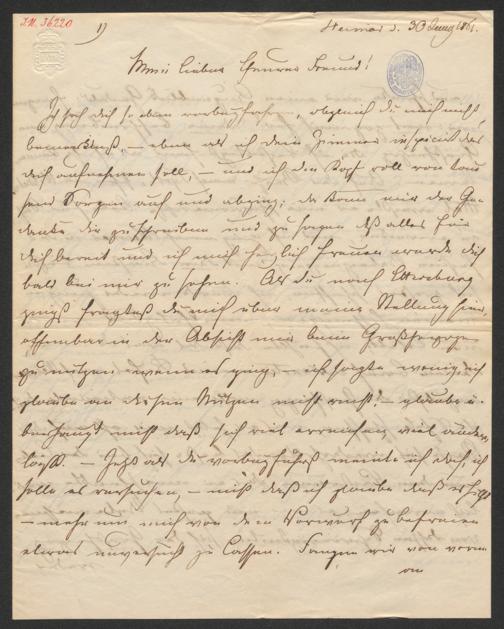 I.N. 36220
1)
Weimar d. 30 Juny 1861.
Mein lieber theurer Freund!
Ich sah dich so eben vorbeyfahren, obgleich du mich nicht
bemerktest, – eben als ich dein Zimmer inspicirt das
dich aufnehmen soll, – und ich den Kopf voll von tau
send Sorgen auf und abging; da kam mir der Ge-
danke dir zu schreiben und zu sagen daß alles für
dich bereit und ich mich herzlich freuen werde dich
bald bei mir zu sehen. Als du nach Ettersburg
gingst fragtest du mich über meine Stellung hier,
offenbar in der Absicht mir beim Großherzoge
zu nützen wenn es ging, – ich sagte wenig, ich
glaube an diesen Nutzen nicht recht! – glaube ü-
berhaupt nicht daß sich viel erreichen viel ändern
läßt. – Jetzt als du vorbeyfuhrst meinte ich doch, ich
solle es versuchen, – nicht daß ich glaube daß es hilft
– mehr um mich von dem Vorwurf zu befreien
etwas unversucht zu lassen. Fangen wir von vorn
an